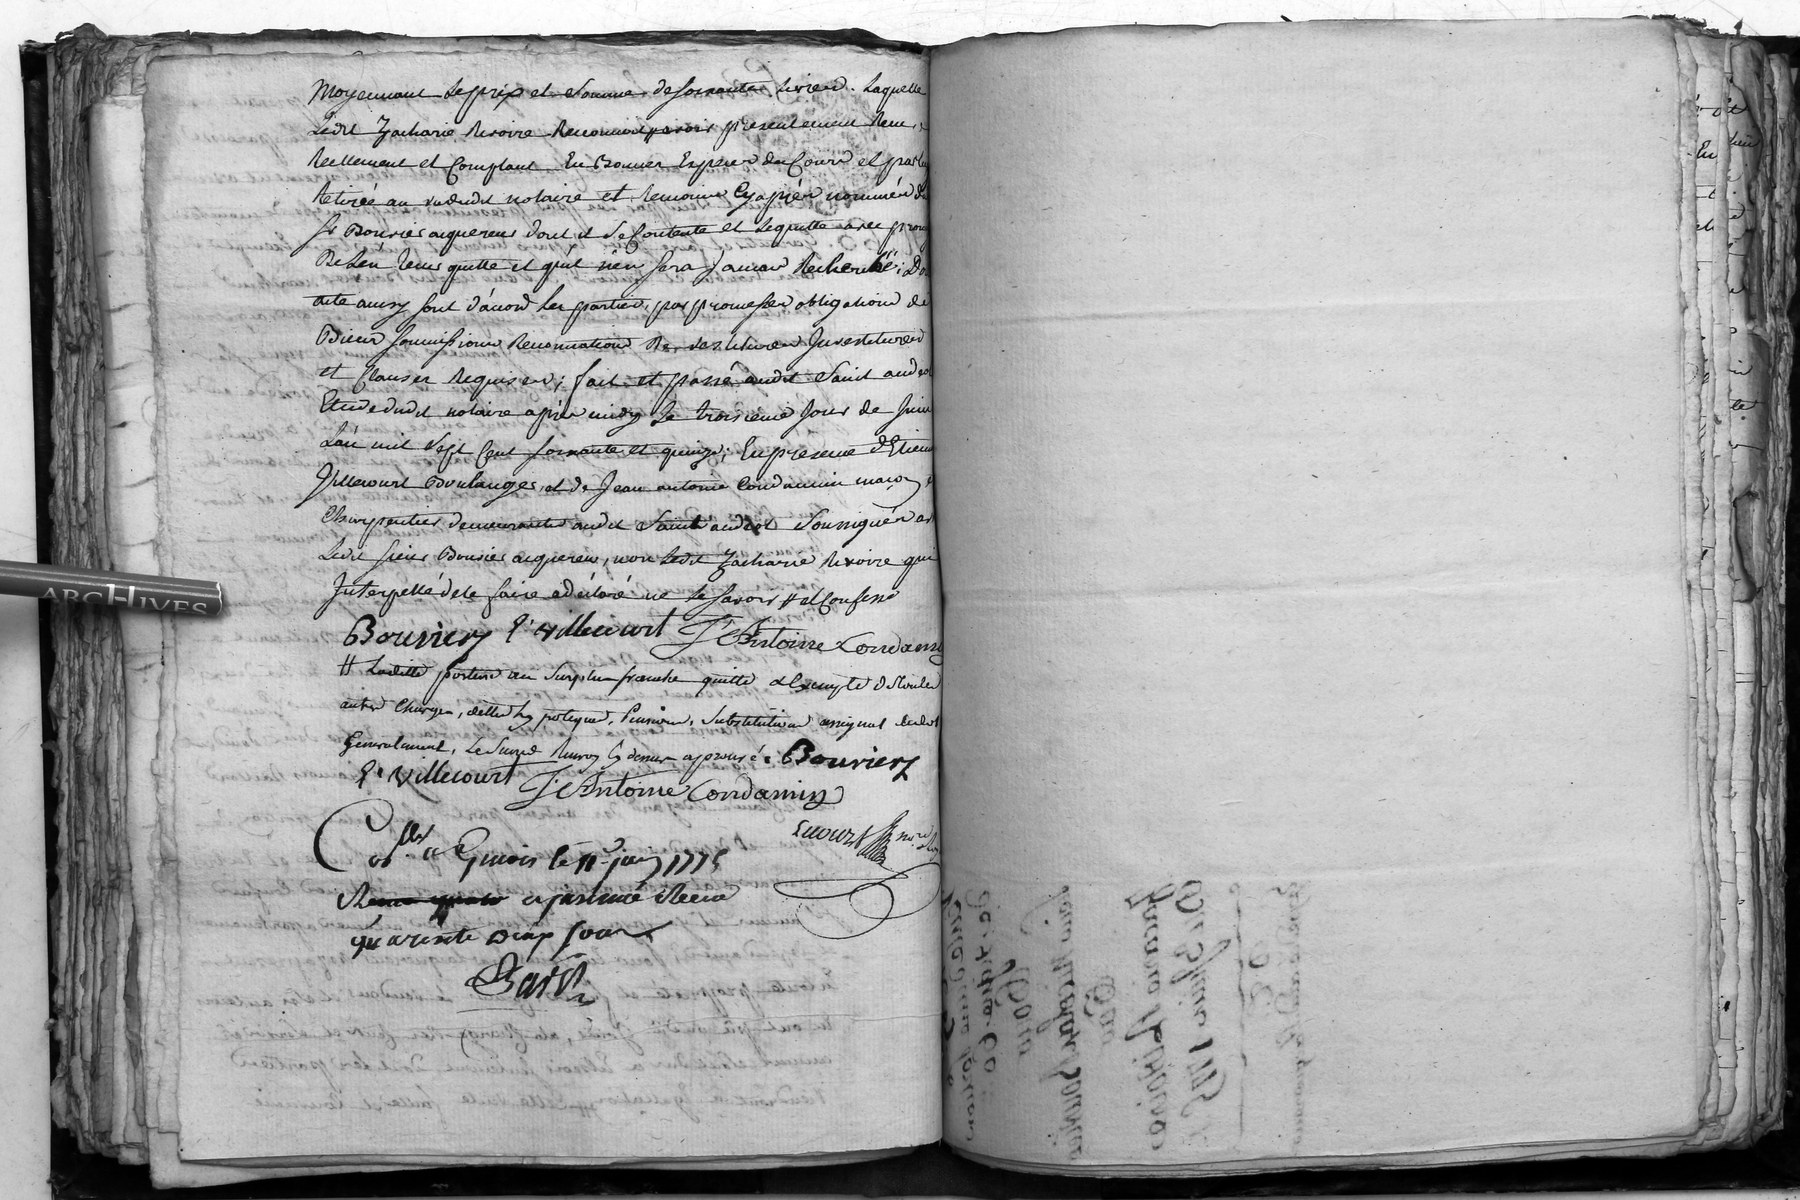 Moyennant Le prix et Somme de soixante Livres. Laquelle
Ledit Zacharie Revoire Reconnoit avoir presentement Reçu
Reellement et Comptant En Bonnes Especes du Cours et par luy
Retirée au vu dudit notaire et temoins Cy après nommés du
Sr Bouvier acquereur dont il Se Contente et Le quitte avec prom
De Len tenir quitte et qu'il n'en Sera Jamais Recherché; Do
acte ainsy sont d'acord les parties, par promesses obligations de
Biens Soumissions Renonciations De vestitures Investitures
et Clauses Requises; fait et passé audit Saint andeol
Etude dudit notaire après midy Le troisieme Jour de Juin
L'an mil Sept Cent soixante et quinze; En presence d'Etienn
Villecourt Boulanger, et de Jean antoine Condamin maçon
Charpentier demeurants audit Saint andeol Soussignés av
Ledit Sieur Bouvier acquereur, non Ledit Zacharie Revoire qui
Interpellé de le faire a déclaré ne le savoir #
Bouvier E. villecourt J. Antoine Condamin
# Laditte portion au Surplus franche quitte et Exempte de toutes
autres Charges, dettes hypoteques, Pensions, Substitutions assignat de dot
Generalement, Le Susd Renvoy Cy dessus aprouvé. Bouvier
E. Villecourt J. Antoine Condamin
Colé a le 11 juin 1775
Reçu
quarente Deux sous